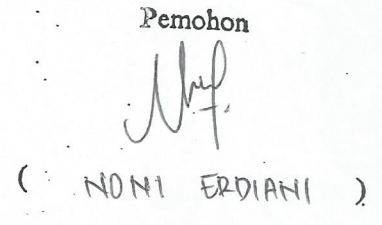 Pemohon
( NONI ERDIANI )